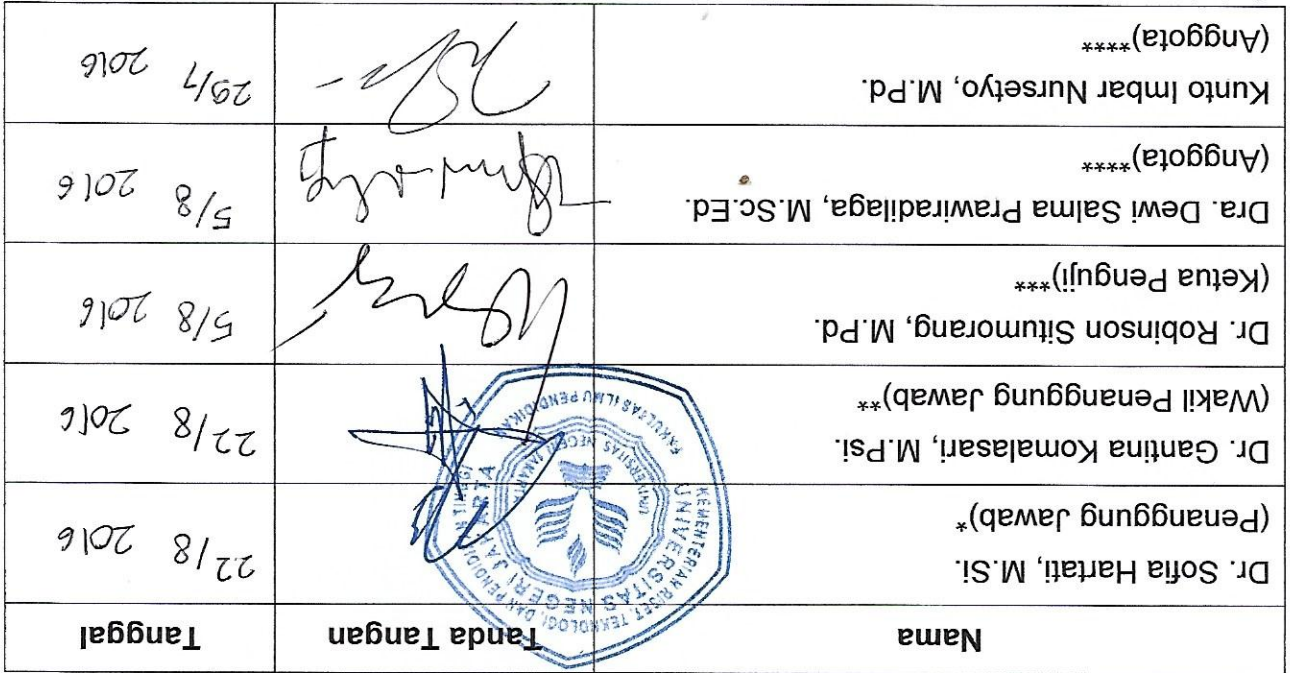 Nama
Tanda Tangan
Tanggal
Dr. Sofia Hartati, M.Si.
(Penanggung Jawab)*
22/8 2016
Dr. Gantina Komalasari, M.Psi.
(Wakil Penanggung Jawab)**
22/8 2016
Dr. Robinson Situmorang, M.Pd.
(Ketua Penguji)***
5/8 2016
Dra. Dewi Salma Prawiradilaga, M.Sc.Ed.
(Anggota)****
5/8 2016
Kunto Imbar Nursetyo, M.Pd.
(Anggota)****
29/7 2016
KEMENTERIAN RISET, TEKNOLOGI, DAN PENDIDIKAN TINGGI
UNIVERSITAS NEGERI JAKARTA
UNIVERSITAS NEGERI JAKARTA
FAKULTAS ILMU PENDIDIKAN